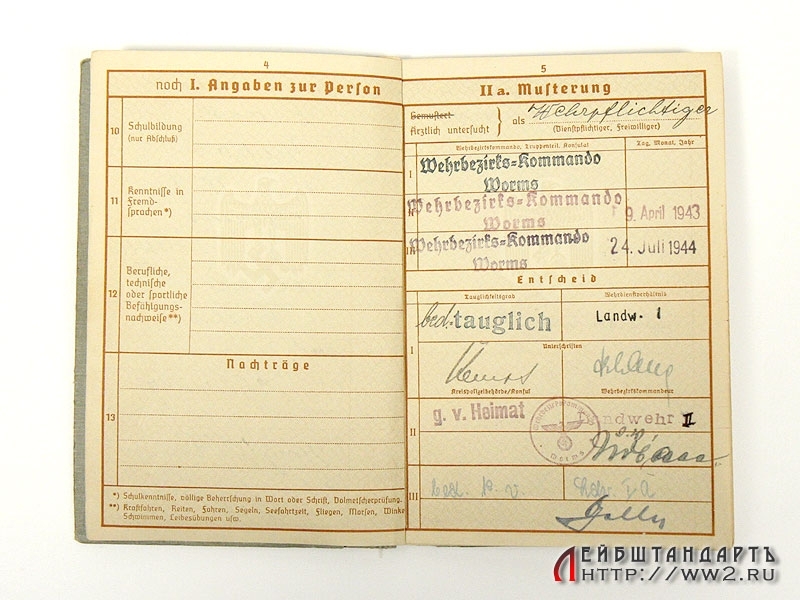 4
noch I. Angaben zur Person
10
Schulbildung
(nur Abschluß)
11
Kenntnisse in
Fremd-
sprachen*)
12
Berufliche,
technische
oder sportliche
Befähigungs-
nachweise**)
Nachträge
13
*) Schulkenntnisse, völlige Beherrschung in Wort oder Schrift, Dolmetscherprüfung.
**) Kraftfahren, Reiten, Fahren, Segeln, Seefahrtzeit, Fliegen, Morsen, Winke
Schwimmen, Leibesübungen usw.
5
II a. Musterung
Gemustert
Ärztlich untersucht } als Wehrpflichtiger
(Dienstpflichtiger, Freiwilliger)
Wehrbezirkskommando, Truppenteil, Konsulat
Tag, Monat, Jahr
I
Wehrbezirks-Kommando
Worms
Wehrbezirks-Kommando
Worms
9. April 1943
Wehrbezirks-Kommando
Worms
24. Juli 1944
Entscheid
Tauglichkeitsgrad
Wehrdienstverhältnis
I
bed. tauglich
Landw. I
Unterschriften
Kreispolizeibehörde/Konsul
Wehrbezirkskommandeur
II
g. v. Heimat
Landwehr II
Worms
III
ЛЕЙБШТАНДАРТЪ
HTTP://WW2.RU